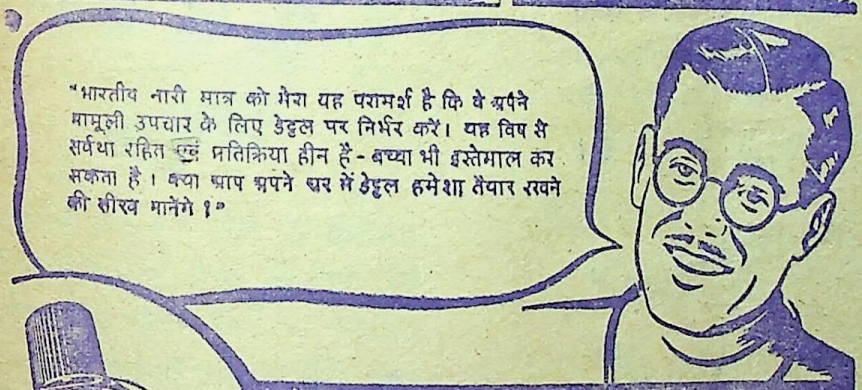 "भारतीय नारी मात्र को मेरा यह परामर्श है कि वे अपने
मामूली उपचार के लिए डेट्टल पर निर्भर करें। यह विष से
सर्वथा रहित एवं प्रतिक्रिया हीन है - बच्चा भी इस्तेमाल कर
सकता है। क्या आप अपने घर में डेट्टल हमेशा तैयार रखने
की सीख मानेंगे ?"